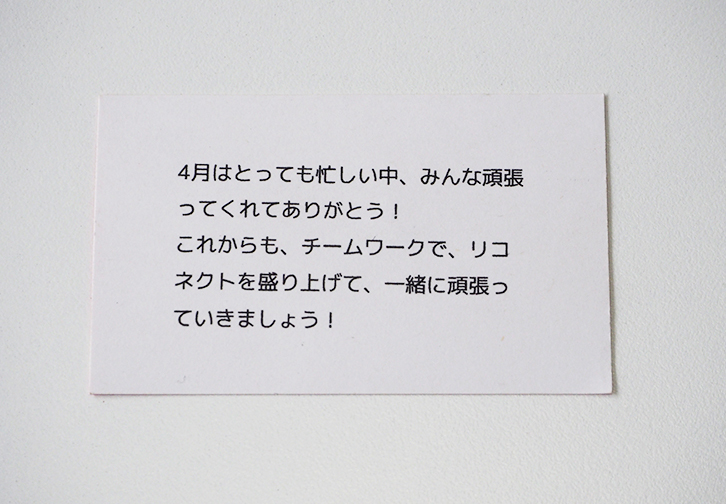 4月はとっても忙しい中、みんな頑張
ってくれてありがとう！
これからも、チームワークで、リコ
ネクトを盛り上げて、一緒に頑張っ
ていきましょう！